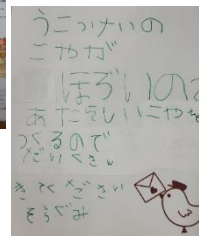 うこっけいの
こやが
ぼろいので
あたらしいこやを
つくるので
きてください
そらぐみ